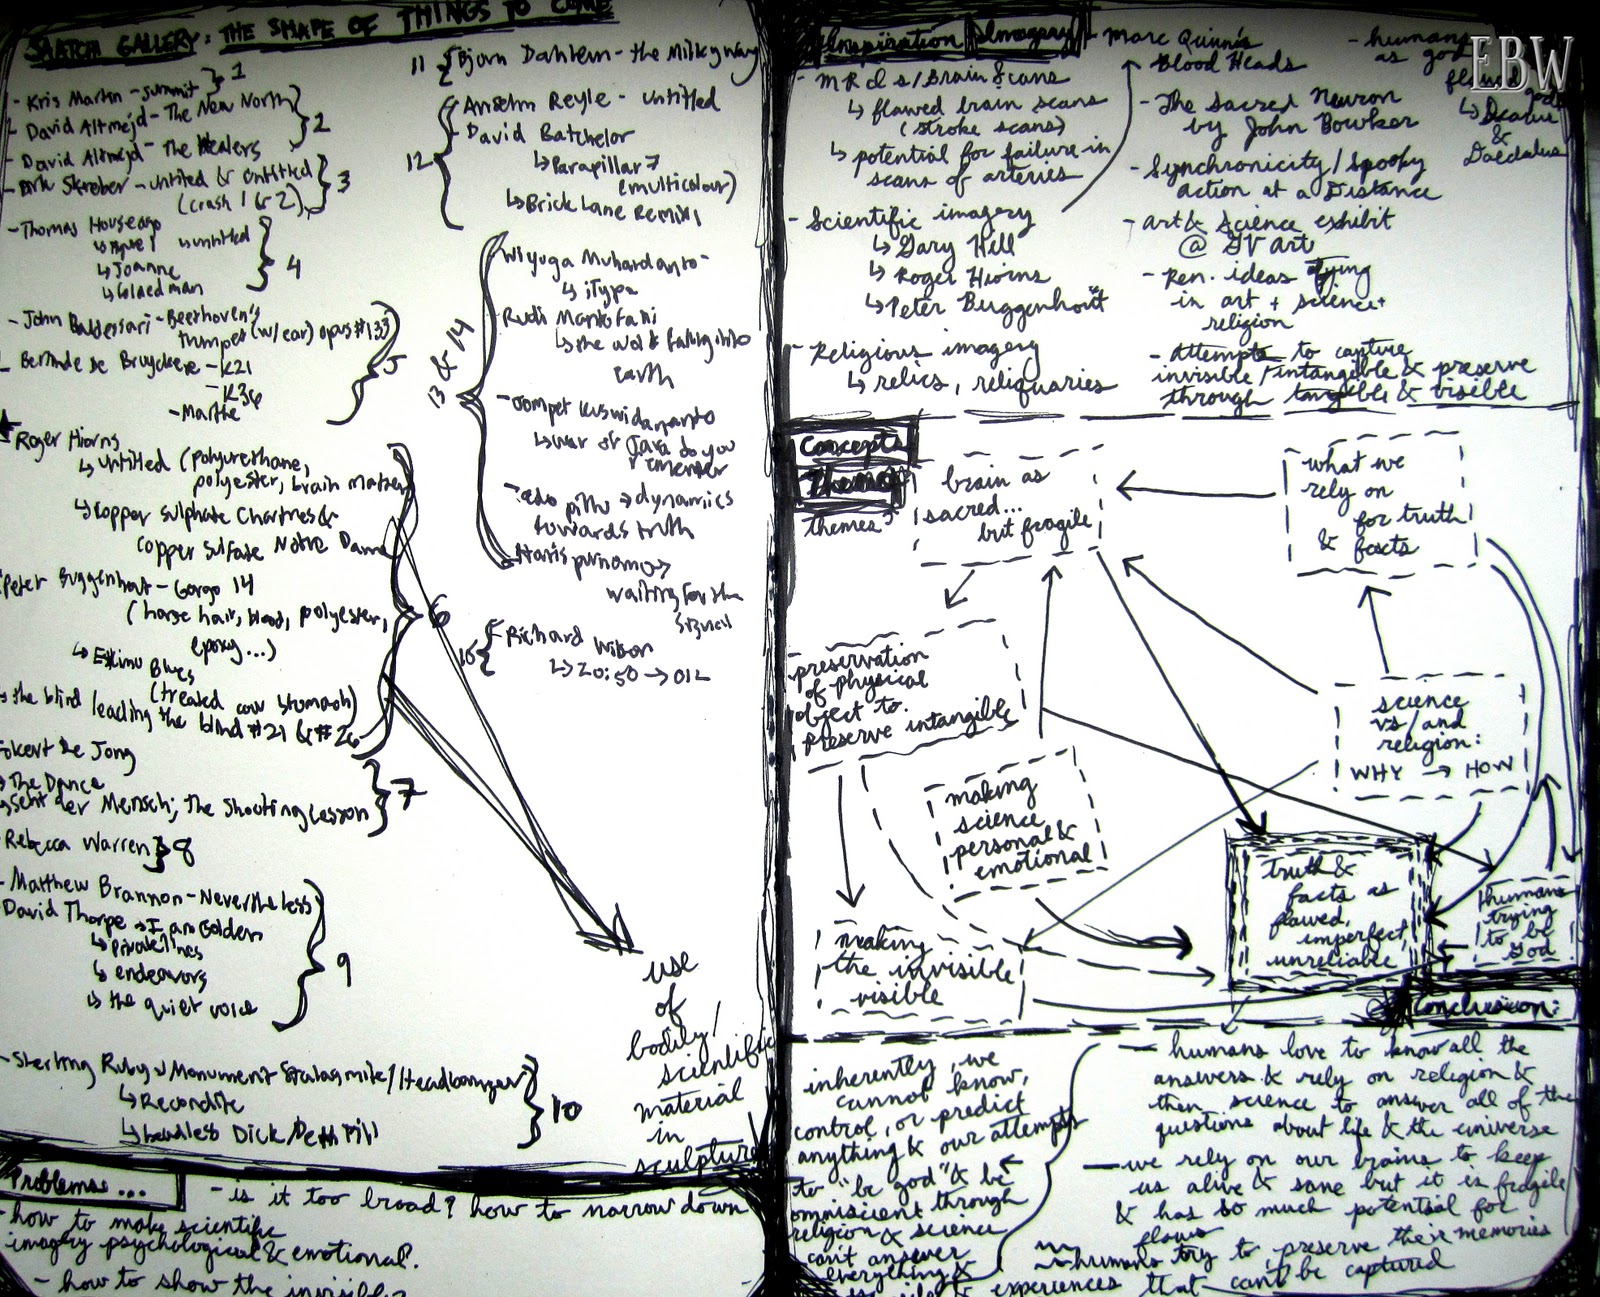 SAATCHI GALLERY: THE SHAPE OF THINGS TO COME
- Kris Martin - summit } 1
- David Altmejd - The New North
- David Altmejd - The Healers } 2
- Dirk Skreber - untitled & untitled
(crash 1 & 2) } 3
- Thomas Houseago
↳ untitled
↳ Joanne
} 4
- John Baldessari - Beethoven's
trumpet (w/ ear) opus #133
- Berlinde De Bruyckere - K21
- K36
- Marthe
} 5
★ Roger Hiorns
↳ untitled (polyurethane,
polyester, brain matter)
↳ copper sulphate Chartres &
copper sulfate Notre Dame
Peter Buggenhout - Gorgo 14
(horse hair, blood, polyester,
epoxy...)
↳ Eskimo Blues
(treated cow stomach)
↳ the blind leading the blind #21 & #26
} 6
Folkert de Jong
↳ The Dance
der Mensch; The Shooting Lesson } 7
Rebecca Warren } 8
- Matthew Brannon - Nevertheless
David Thorpe → I am Golden
↳ Private lives
↳ endeavors
↳ the quiet voice
} 9
- Sterling Ruby → Monument Stalagmite/Headbanger
↳ Recondite
↳ headless Dick/Deth Till
} 10
11 { Bjorn Dahlem - the Milky way
Anselm Reyle - untitled
- David Batchelor
12 ↳ Parapillar 7
(multicolour)
↳ Brick Lane Remix 1
13 & 14
Wiyoga Muhardanto -
↳ iType
Rudi Mantofani
↳ the world falling into
earth
- Jompet Kuswidananto
↳ War of Java do you
remember
→ dynamics
towards truth
Haris Purnomo →
waiting for the
signal
15 { Richard Wilson
↳ 20:50 → OIL
use
of
bodily/
scientific
material
in
sculpture
Problems...
- is it too broad? how to narrow down
- how to make scientific
imagery psychological & emotional?
- how to show the invisible?
Inspiration Imagery
- MRIs/Brain Scans
↳ flawed brain scans
(stroke scans)
↳ potential for failure in
scans of arteries
- Scientific imagery
↳ Gary Hill
↳ Roger Hiorns
↳ Peter Buggenhout
- Religious imagery
↳ relics, reliquaries
Marc Quinn's
Blood Heads
- The Sacred Neuron
by John Bowker
- Synchronicity/Spooky
action at a Distance
- art & Science exhibit
@ GV Art
- Ren. ideas tying
in art + science +
religion
- attempts to capture
invisible/intangible & preserve
through tangible & visible
- humans
as god
flawed
gods
↳ Icarus
&
Daedalus
EBW
Concepts
Themes
themes
brain as
sacred...
but fragile
what we
rely on
for truth
& facts
preservation
of physical
object to
preserve intangible
science
vs/and
religion:
WHY → HOW
making
science
personal &
emotional
making
the invisible
visible
truth &
facts as
flawed,
imperfect,
unreliable
humans
trying
to be
god
Conclusion:
- humans love to know all the
answers & rely on religion &
then science to answer all of the
questions about life & the universe
- we rely on our brains to keep
us alive & sane but it is fragile
& has so much potential for
flaws
- humans try to preserve their memories
& experiences that can't be captured
inherently, we
cannot know,
control, or predict
anything & our attempts
to "be god" & be
omniscient through
religion & science
can't answer
everything &